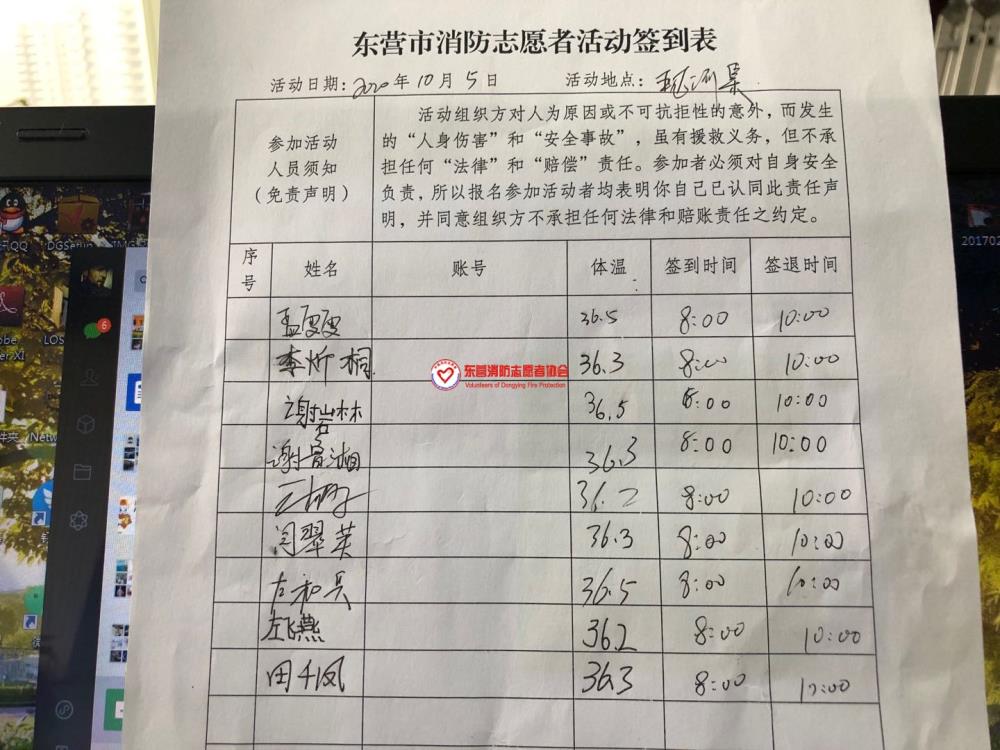 东营市消防志愿者活动签到表
活动日期：2020年10月5日 活动地点：
参加活动
人员须知
（免责声明）
活动组织方对人为原因或不可抗拒性的意外，而发生
的“人身伤害”和“安全事故”，虽有援救义务，但不承
担任何“法律”和“赔偿”责任。参加者必须对自身安全
负责，所以报名参加活动者均表明你自己已认同此责任声
明，并同意组织方不承担任何法律和赔账责任之约定。
序号 姓名 账号 体温 签到时间 签退时间
36.5 8:00 10:00
李炘桐 36.3 8:00 10:00
谢 林 36.5 8:00 10:00
谢 湘 36.3 8:00 10:00
36.2 8:00 10:00
闫翠英 36.3 8:00 10:00
左和兵 36.5 8:00 10:00
燕 36.2 8:00 10:00
田 凤 36.3 8:00 10:00
东营消防志愿者协会
Volunteers of Dongying Fire Protection
QQ
DGSetup
IMG
201702
LOS
er XI
件夹
Netw
6